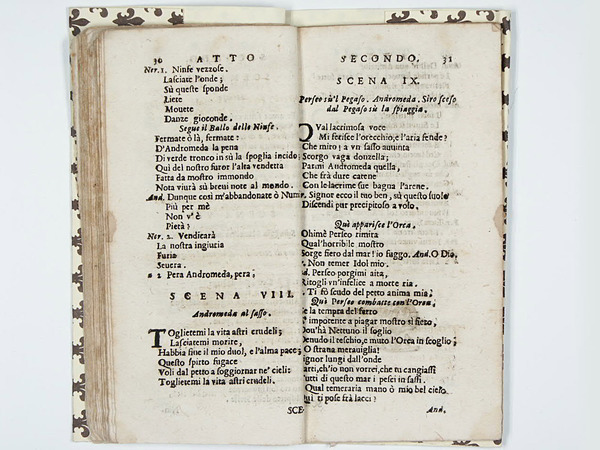 30 ATTO
Ner. 1. Ninfe vezzose.
Lasciate l'onde;
Sù queste sponde
Liete
Mouete
Danze gioconde.
Segue il Ballo delle Ninfe.
Fermate ò là, fermate:
D'Andromeda la pena
Di verde tronco in sù la spoglia incido;
Qui del nostro furor l'alta vendetta
Fatta da mostro immondo
Nota viurà sù breui note al mondo.
And. Dunque così m'abbandonate ò Numi
Più per mè
Non v'è
Pietà?
Ner. 2. Vendicarà
La nostra ingiuria
Furia
Seuera.
à 2 Pera Andromeda, pera;
SCENA VIII.
Andromeda al sasso.
Toglietemi la vita astri crudeli;
Lasciatemi morire,
Habbia fine il mio duol, e l'alma pace;
Questo spirto fugace
Voli dal petto a soggiornar ne' cieli:
Toglietemi la vita astri crudeli.
SCE-
SECONDO. 31
SCENA IX.
Perseo sù'l Pegaso. Andromeda. Siro sceso
dal Pegaso sù la spiaggia.
QVal lacrimosa voce
Mi ferisce l'orecchio, e l'aria fende?
Che miro! a vn sasso auuinta
Scorgo vaga donzella;
Parmi Andromeda quella,
Che frà dure catene
Con le lacrime sue bagna l'arene.
Signor ecco il tuo ben, sù questo suolo
Discendi pur precipitoso a volo.
Quì apparisce l'Orca.
Ohimè Perseo rimira
Qual'horribile mostro
Sorge fiero dal mar! io fuggo. And. O Dio.
Non temer Idol mio.
Perseo porgimi aita,
Ritogli vn'infelice a morte ria.
Ti fò scudo del petto anima mia;
Quì Perseo combatte con l'Orca;
Se la tempra del ferro
E' impotente a piagar mostro sì fiero,
Dou'hà Nettuno il soglio
Denudo il teschio, e muto l'Orca in scoglio;
O strana merauiglia!
Signor lungi dall'onde
Parti, ch'io non vorrei, che tu cangiassi
Tutti di questo mar i pesci in sassi.
Qual temeraria mano ò mio bel cielo
Qui ti pose frà lacci?
And.